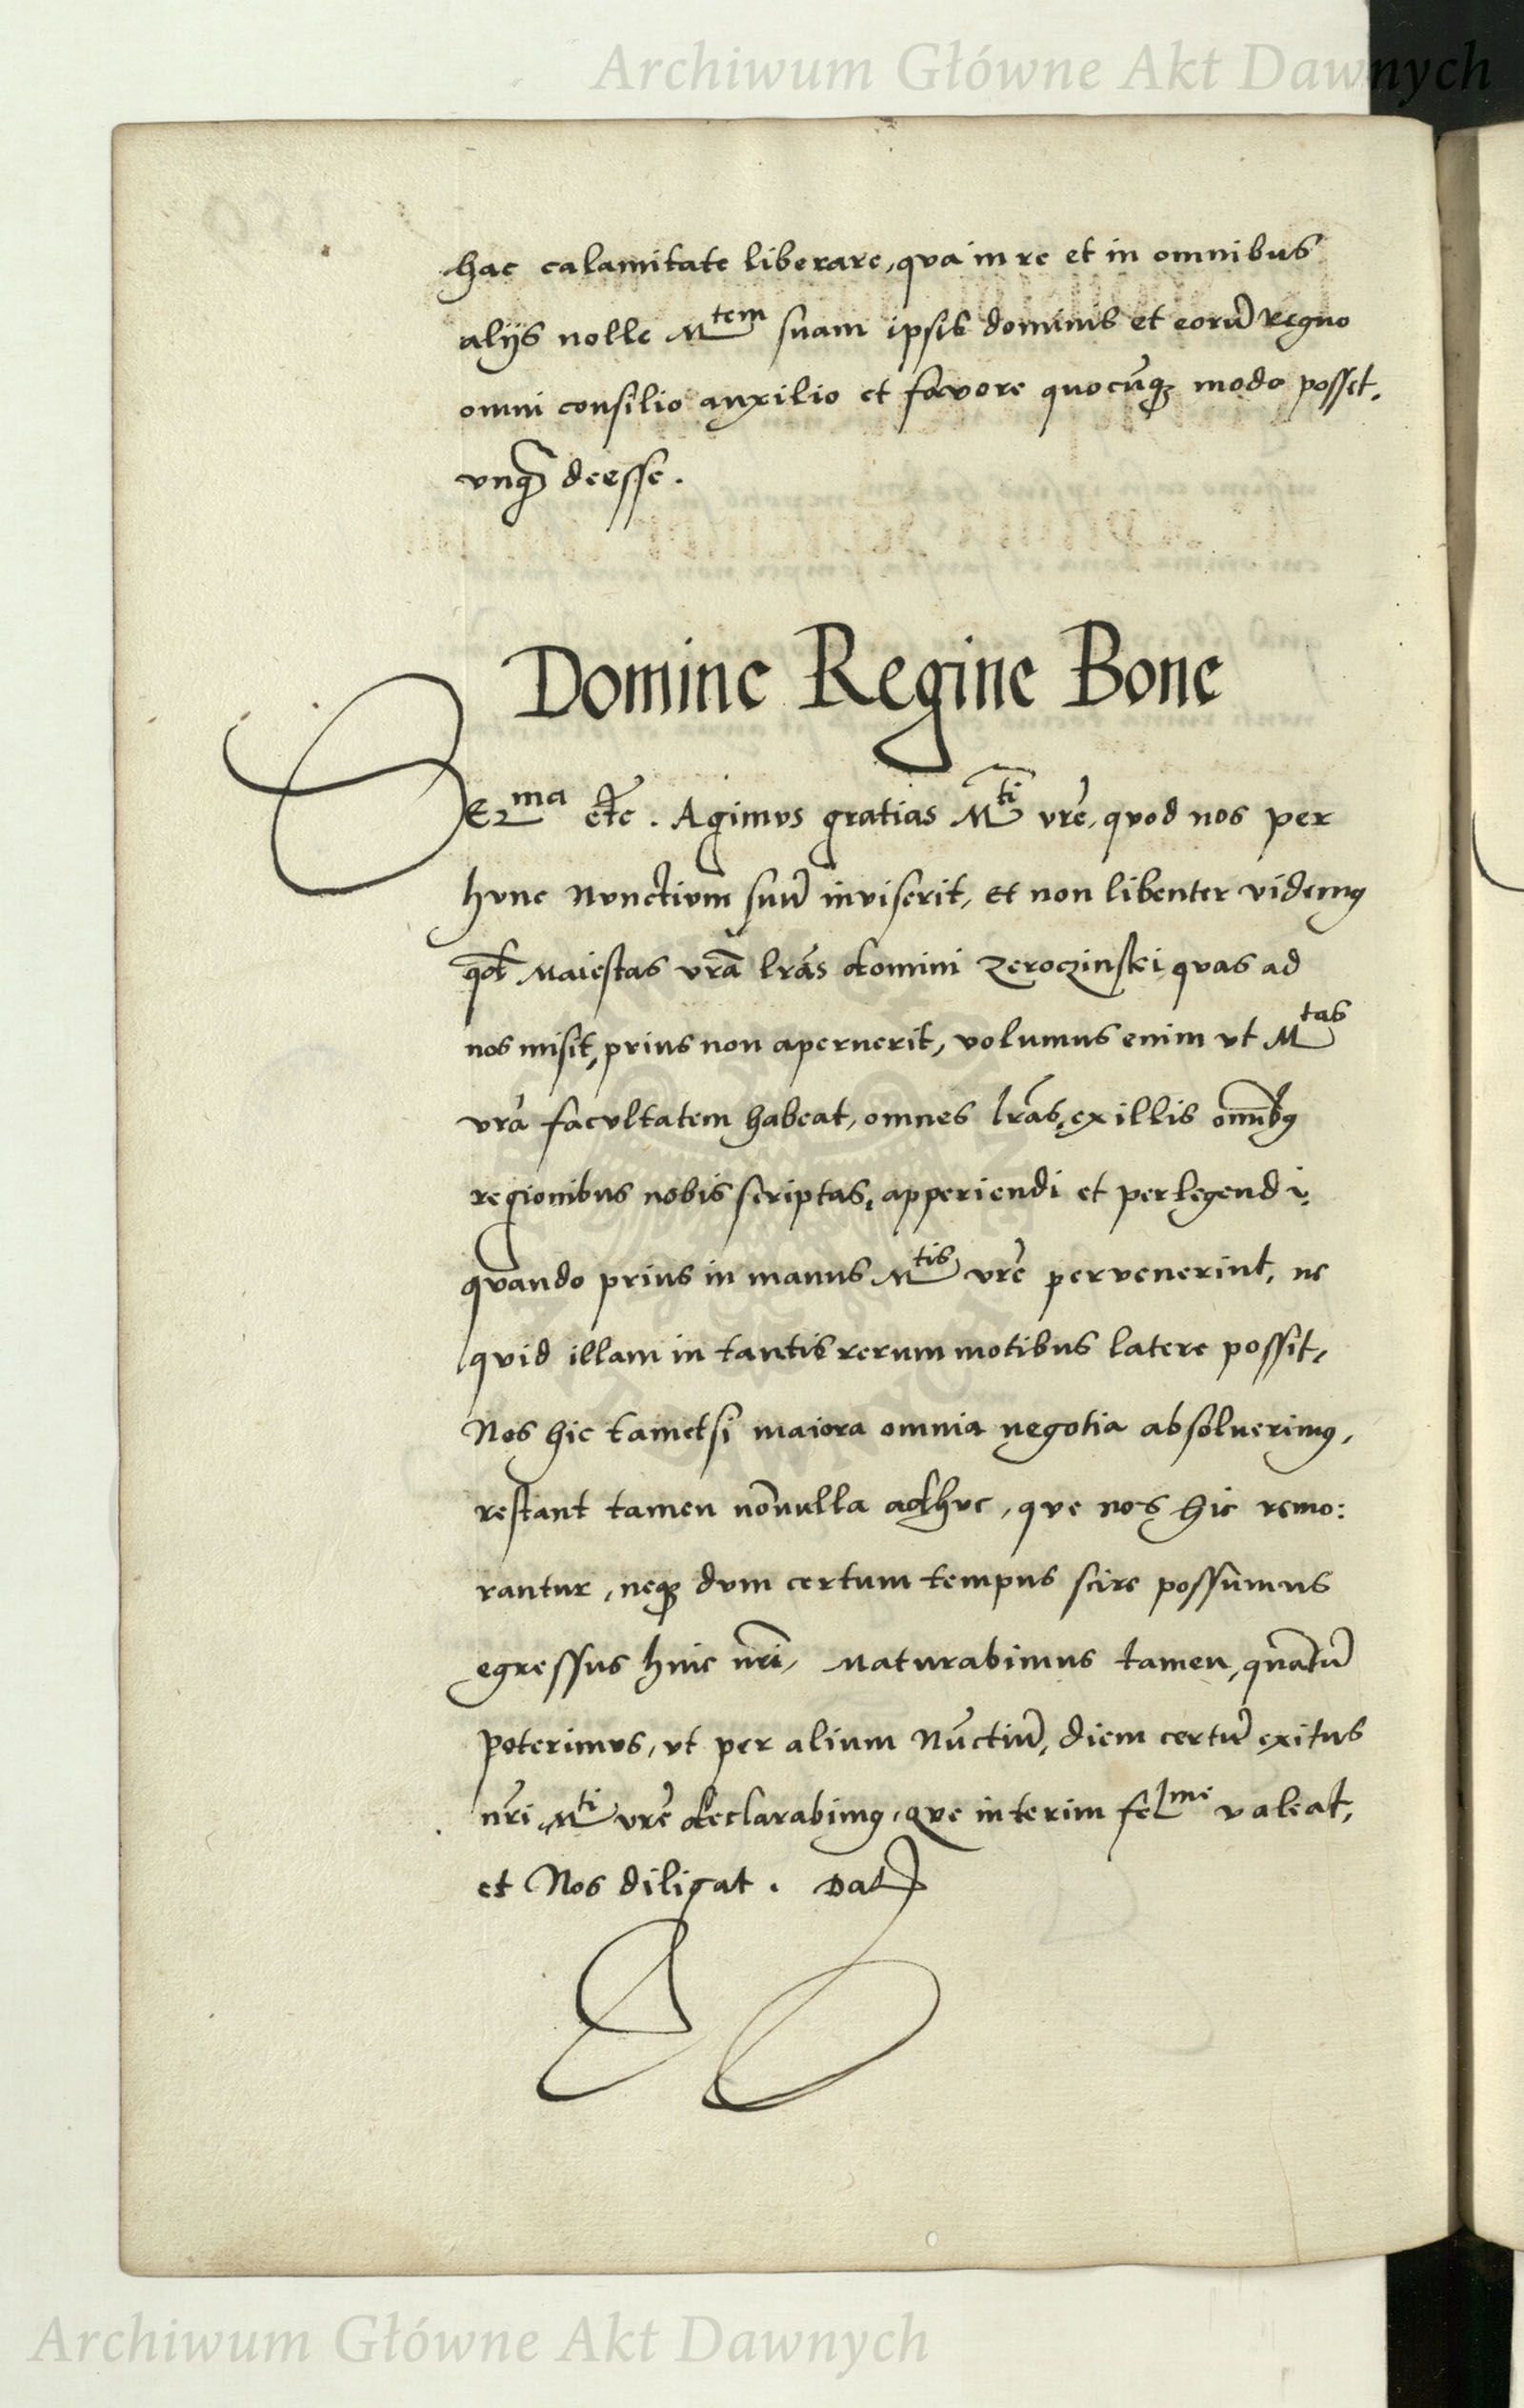 Archiwum Główne Akt Dawnych
hac calamitate liberare, qva in re et in omnibus
alijs nolle Mtem suam ipsis dominis et eorū Regno
omni consilio auxilio et favore quocūqꝫ modo posset,
vnqꝫ deesse.
Domine Regine Bone
SErma etc. Agimvs gratias Mti vrē, qvod nos per
hvnc Nvnctivm suū inviserit, et non libenter videmꝰ
qđ Maiestas vrā lrās domini Zeroczinski qvas ad
nos misit, prius non aperuerit, volumus enim vt Mtas
vrā facvltatem habeat, omnes lrās, ex illis omībꝰ
regionibus nobis scriptas, apperiendi et perlegendi,
qvando prius in manus Mtis vrē pervenerint, ne
qvid illam in tantis rerum motibus latere possit,
Nos hic tametsi maiora omnia negotia absoluerimꝰ,
restant tamen nōnulla adhvc, qve nos hic remo:
rantur, neqꝫ dvm certum tempus scire possumus
egressus hinc nrī, Maturabimus tamen, quātū
poterimvs, vt per alium Nūctiū, diem certū exitus
nrī Mti vrē declarabimꝰ, qve interim felme valeat,
et Nos diligat. Dat
Archiwum Główne Akt Dawnych